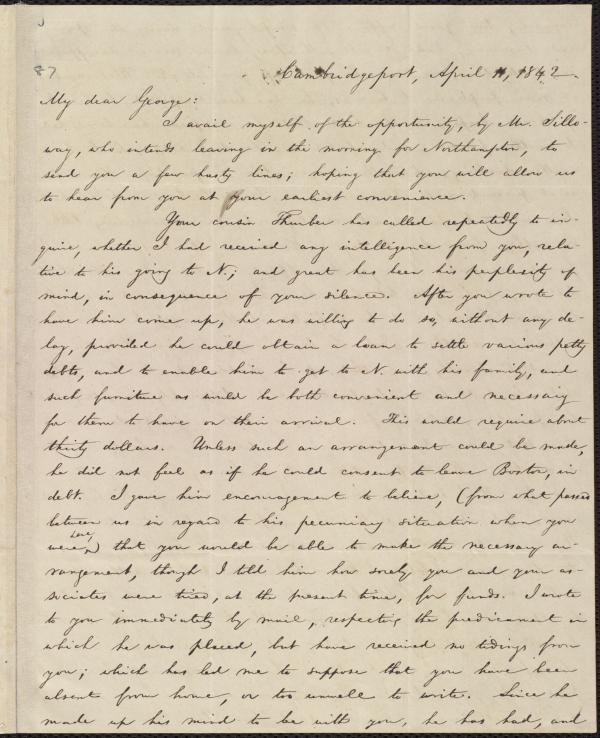 87
Cambridgeport, April 11, 1842.
My dear George:
I avail myself of the opportunity, by Mr. Sillo-
way, who intends leaving in the morning for Northampton, to
send you a few hasty lines; hoping that you will allow us
to hear from you at your earliest convenience.
Your cousin Thurber has called repeatedly to in-
quire, whether I had received any intelligence from you, rela-
tive to his going to N.; and great has been his perplexity of
mind, in consequence of your silence. After you wrote to
have him come up, he was willing to do so, without any de-
lay, provided he could obtain a loan to settle various petty
debts, and to enable him to get to N. with his family, and
such furniture as would be both convenient and necessary
for them to have on their arrival. This would require about
thirty dollars. Unless such an arrangement could be made,
he did not feel as if he could consent to leave Boston, in
debt. I gave him encouragement to believe, (from what passed
between us in regard to his pecuniary situation when you
were here,) that you would be able to make the necessary ar-
rangement, though I told him how sorely you and your as-
sociates were tried, at the present time, for funds. I wrote
to you immediately by mail, respecting the predicament in
which he was placed, but have received no tidings from
you; which has led me to suppose that you have been
absent from home, or too unwell to write. Since he
made up his mind to be with you, he has had, and